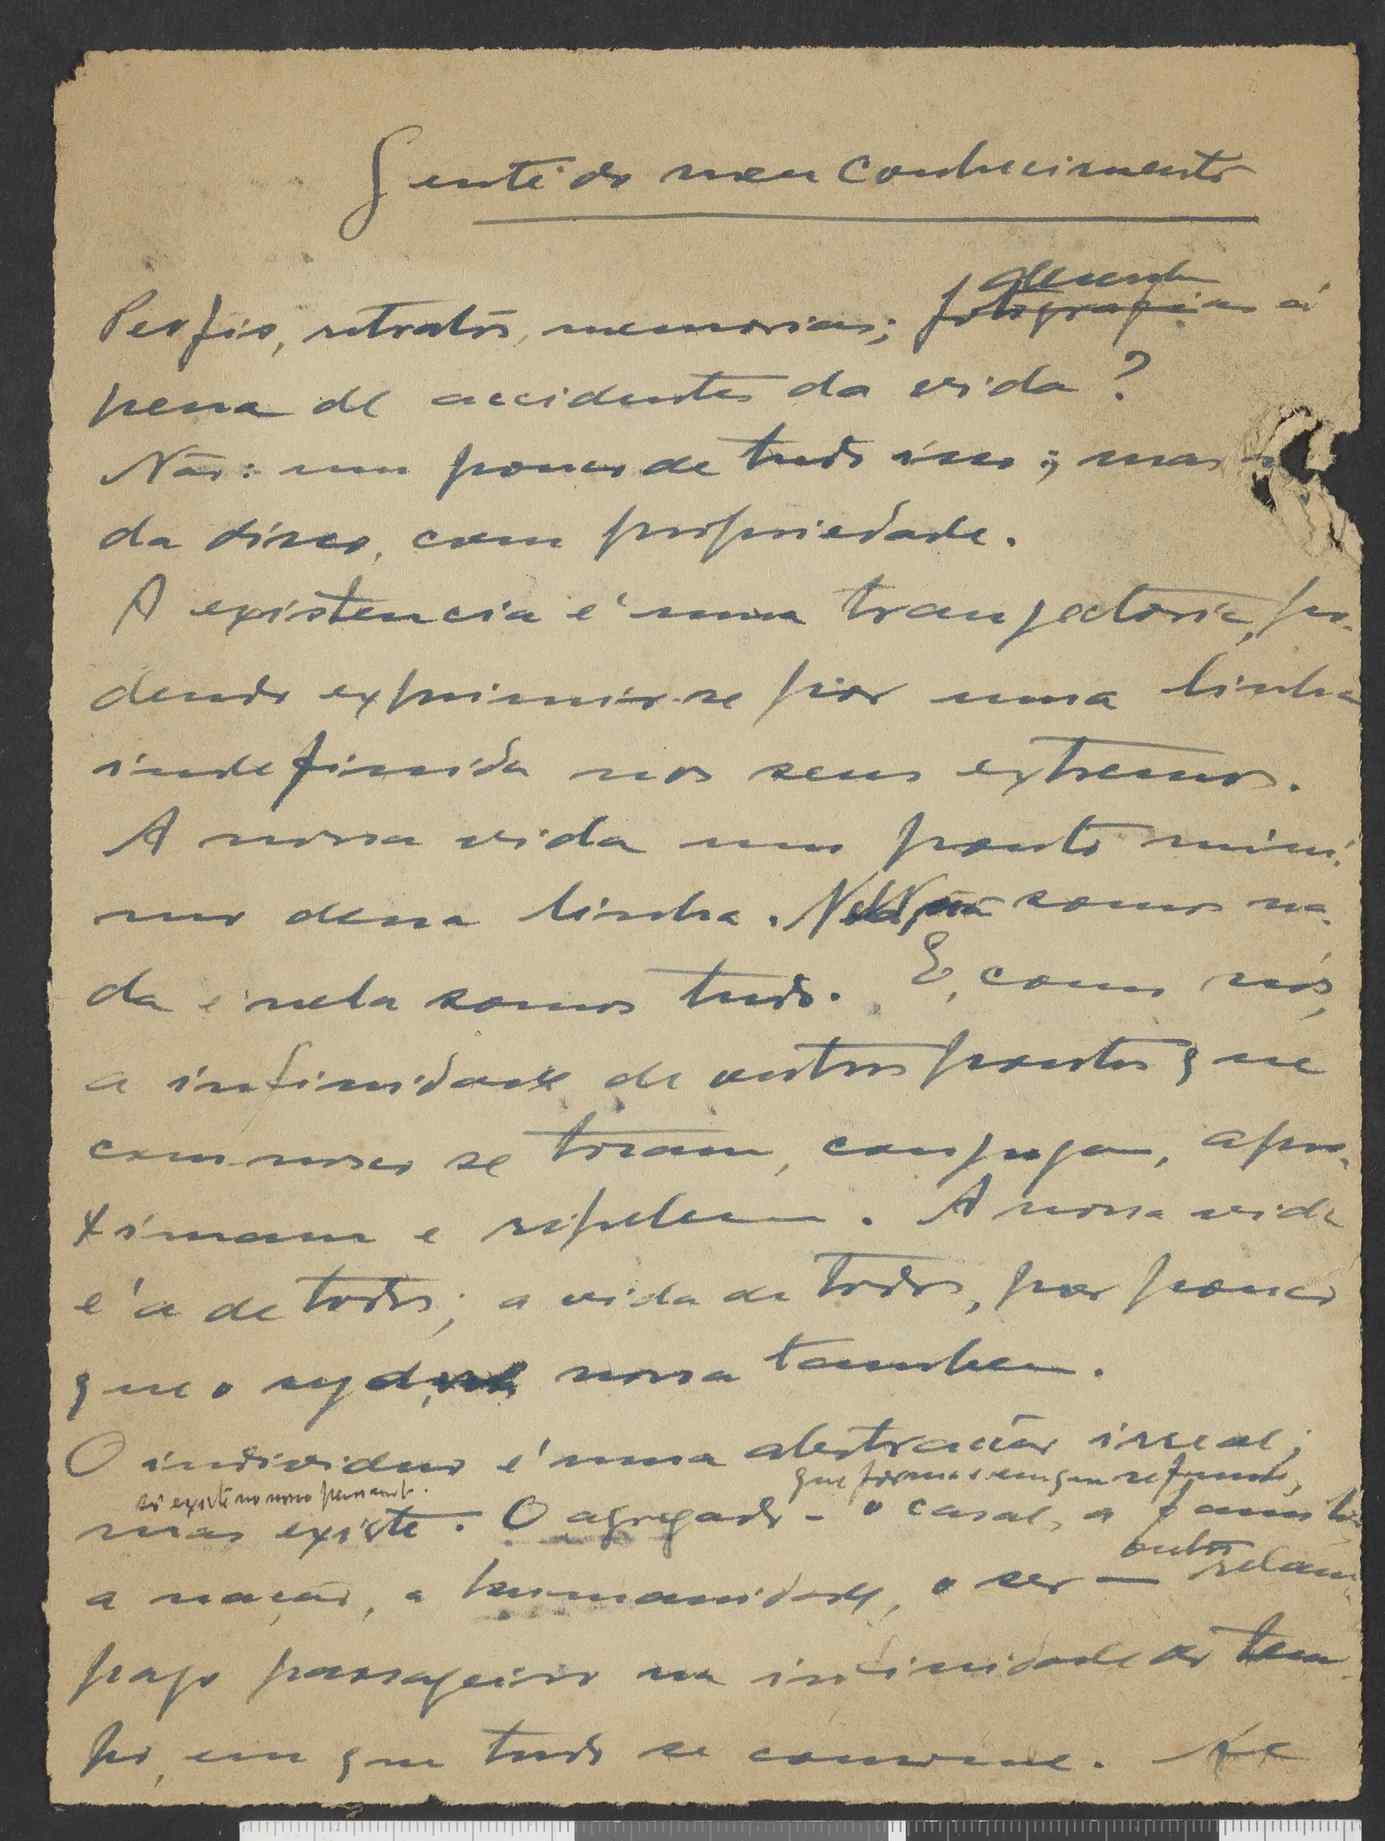 Gente do meu conhecimento
Perfis, retratos, memorias; desenho fotografias á
pena de accidentes da vida?
Não: um pouco de tudo isso; mas
da disso, com propriedade.
A existencia é uma tranjectoria, po-
dendo exprimir-se por uma linha
indefinida nos seus extremos.
A nossa vida um ponto mini-
mo dessa linha. somos na-
da e nela somos tudo. E, como nós,
a infinidade de outros pontos que
comnosco se tocam, conjugam, apro-
ximam e repelem. A nossa vida
é a de todos; a vida de todos, por pouco
que o seja, nossa tambem.
O individuo é uma abstracção irreal;
só existe no nosso pensamto. que forma e em que se funde,
mas existe. O agregado – o casal, a familia
outro
a nação, a humanidade, o ser — relam-
pago passageiro na infinidade do tem-
po, em que tudo se consome. Se